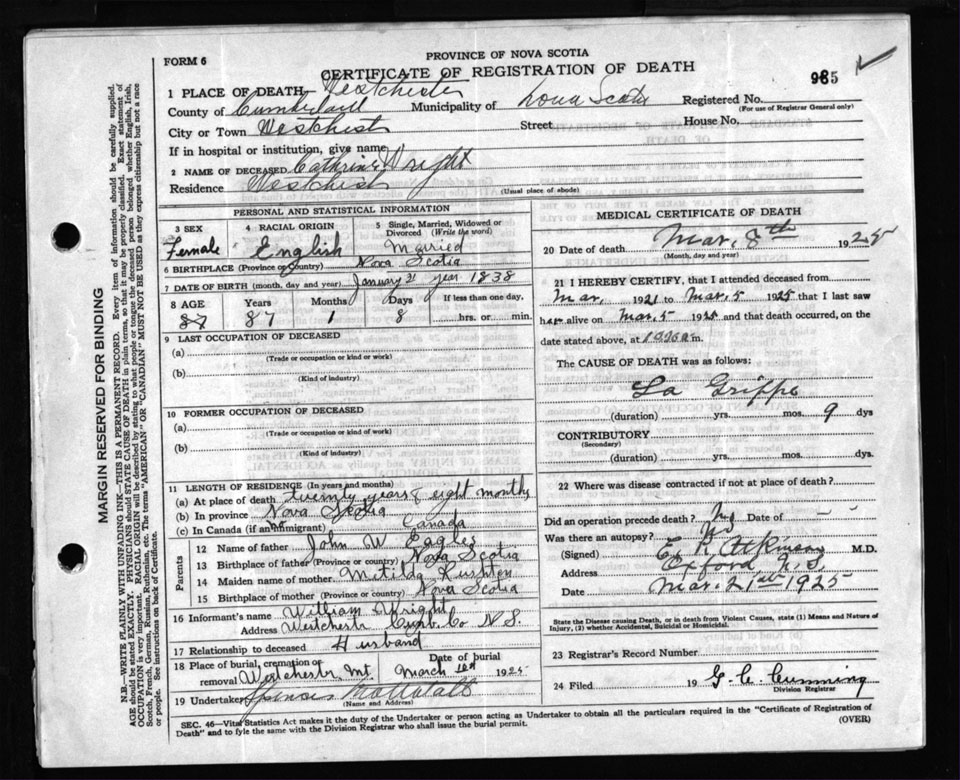 FORM 6
PROVINCE OF NOVA SCOTIA
CERTIFICATE OF REGISTRATION OF DEATH
985
1 PLACE OF DEATH, Westchester
County of Cumberland Municipality of Nova Scotia Registered No.
(For use of Registrar General only)
City or Town Westchester Street House No.
If in hospital or institution, give name
2 NAME OF DECEASED Cathrine Wright
Residence Westchester
(Usual place of abode)
PERSONAL AND STATISTICAL INFORMATION
3 SEX 4 RACIAL ORIGIN 5 Single, Married, Widowed or Divorced (Write the word)
Female English Married
6 BIRTHPLACE (Province or Country) Nova Scotia
7 DATE OF BIRTH (month, day and year) January 31 year 1838
8 AGE Years Months Days If less than one day,
87 87 1 8 hrs. or min.
9 LAST OCCUPATION OF DECEASED
(a)
(Trade or occupation or kind or work)
(b)
(Kind of industry)
10 FORMER OCCUPATION OF DECEASED
(a)
(Trade or occupation or kind of work)
(b)
(Kind of Industry)
11 LENGTH OF RESIDENCE (In years and months)
(a) At place of death twenty years & eight months
(b) In province Nova Scotia
(c) In Canada (if an immigrant) no Canada
Parents
12 Name of father John W Eagles
13 Birthplace of father (Province or Country) Nova Scotia
14 Maiden name of mother Metilda Rushton
15 Birthplace of mother (Province or country) Nova Scotia
16 Informant's name William Wright
Address Westchestr Cumb. Co N S.
17 Relationship to deceased Husband
18 Place of burial, cremation or removal Westchestr Mt Date of burial March 1925
19 Undertaker
(Name and Address)
MEDICAL CERTIFICATE OF DEATH
20 Date of death Mar. 8th 1925
(Month, day and year)
21 I HEREBY CERTIFY, that I attended deceased from
Mar, 1921 to Mar. 5 1925 that I last saw
her alive on Mar. 5 1925 and that death occurred, on
date stated above, at m.
The CAUSE OF DEATH was as follows:
La Grippe
(duration) yrs. mos. 9 dys
CONTRIBUTORY
(Secondary)
(duration) yrs. mos. dys.
22 Where was disease contracted if not at place of death?
Did an operation precede death? No Date of
Was there an autopsy? No
(Signed) Atkinson M.D.
Address Oxford, N.S.
Date Mar. 21st 1925
State the Disease causing Death, or in death from Violent Causes, state (1) Means and Nature of
Injury, (2) whether Accidental, Suicidal or Homicidal.
23 Registrar's Record Number
24 Filed 19 G. C. Cumming
Division Registrar
SEC. 46—Vital Statistics Act makes it the duty of the Undertaker or person acting as Undertaker to obtain all the particulars required in the "Certificate of Registration of
Death" and to fyle the same with the Division Registrar who shall issue the burial permit.
(OVER)
MARGIN RESERVED FOR BINDING
N.B.—WRITE PLAINLY WITH UNFADING INK—THIS IS A PERMANENT RECORD. Every item of information should be carefully supplied.
AGE should be stated EXACTLY. PHYSICIANS should STATE CAUSE OF DEATH in plain terms, so that it may be properly classified. Exact statement of
OCCUPATION is very important. RACIAL ORIGIN will be described by stating to what people or tongue the deceased person belonged whether English, Irish,
Scotch, French, German, Russian, Ruthenian, etc. The terms "AMERICAN" or "CANADIAN" MUST NOT BE USED as they express citizenship but not a race
or people. See instructions on back of Certificate.